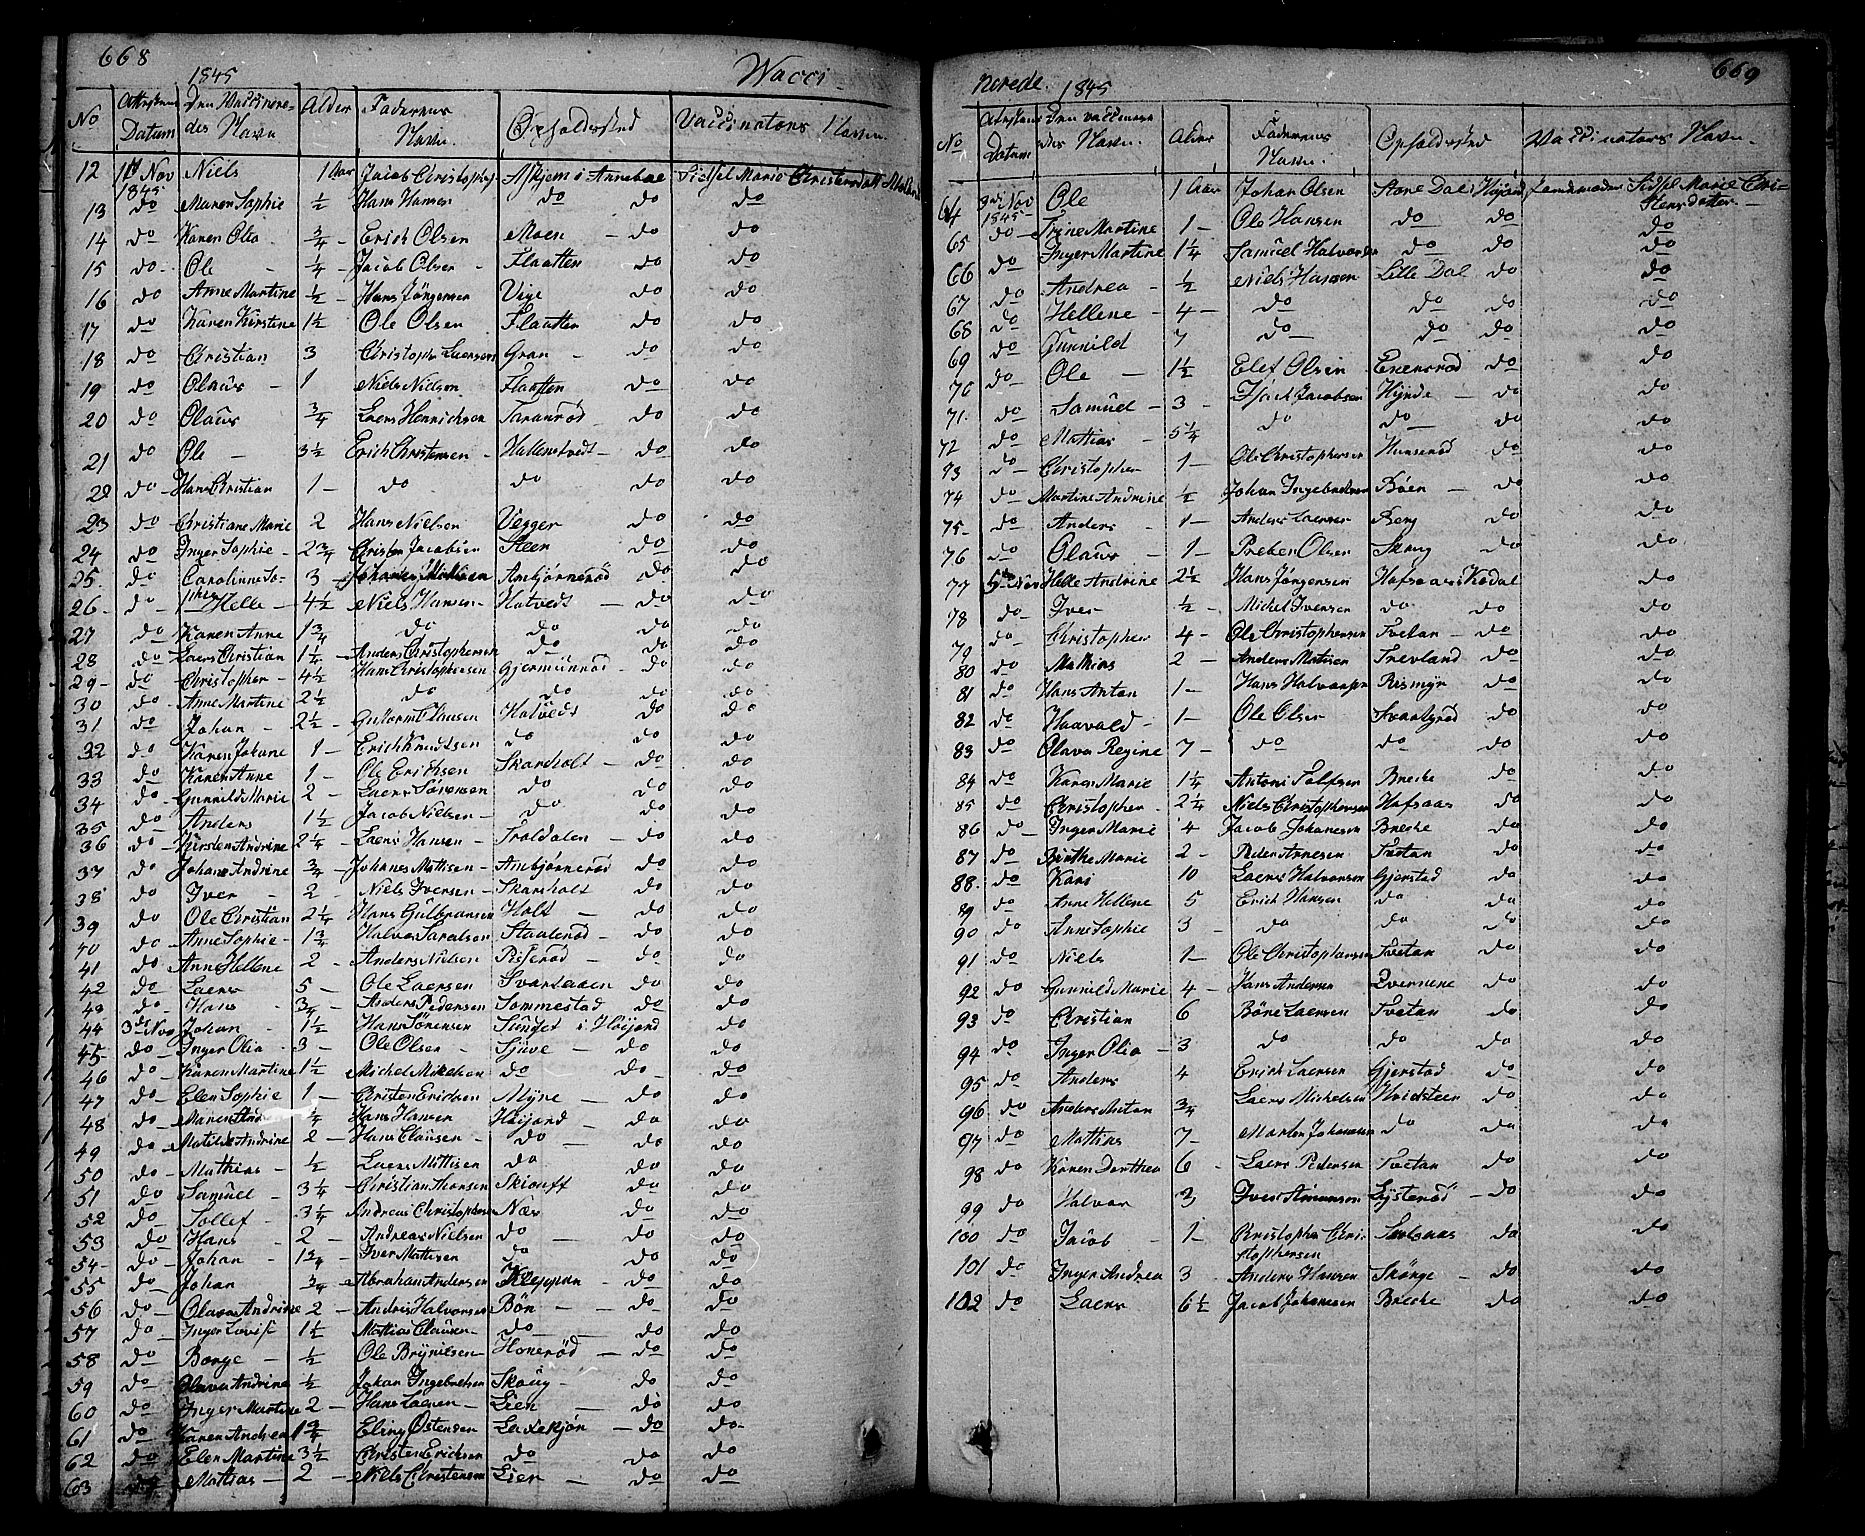 668
1845
Wacci-
No
Datum
des Navn
Alder
Faderens Navn.
Opholdssted
Vaccinators Navn
12 1ste Nov 1845 Niels 1 Aar Jacob Christophs Askjem i Annebae Sidsel Marie Christensdatt
13 do Maren Sophie ½ Hans Hansen do do do
14 do Karen Olia ¾ - Erich Olsen Moen - do do
15 do - Ole - ¼ - Jacob Olsen - Flaatten do do
16 do Anne Martine ½ - Hans Jörgensen Vige do do
17 do Karen Kirstine 1½ Ole Olsen Flaatten do do
18 do Christian 3 Christoph Laersen Gran - do do
19 do Olaus - 1 Niels Nielsen Flaatten do do
20 do Olaus ¾ - Laers Henrichsen Taranröd do do
21 do Ole - 3½ Erich Christensen - Hallenstvedt - do do
22 do - Hans Christian 1 - do do do do
23 do - Christiane Marie 2 Hans Nielsen Vegger do do
24 do Inger Sophie - 2¾ Christen Jacobsen Steen do do
25. do Carolinne So- 3 - Johannes Mathisen Ambjørneröd do do
26 - do - phie Helle - 4½ Niels Hansen - Hotvedt - do do
27 do Karen Anne 1¾ do do do do
28 do Laers Christian 1¼ - Anders Christophersen do do do
29 - do - Christopher - 4½ Hans Christophersen Gjermunröd - do do
30 do - Anne Martine 2½ do do do do
31 do Johan - 2½ - Guttorm Clausen Hotvedt do do
32 do - Karen Johane 1 - Erich Knudtsen do do do
33 do - Karen Anne 1 - Ole Erichsen Skarsholt - do do
34 do - Gunnild Marie 2 - Laers Sörensen do do do
35 do - Anders 1½ Jacob Nielsen - do do do
36 do - Kirsten Andrine 2¼ Laers Hansen - Troldalen - do do
37 do Johane Andrine ¾ - Johanes Mattisen - Ambjørneröd do do
38 do Iver - 2 - Niels Iversen - Skarsholt - do do
39 do Ole Christian 2¼ Hans Gulbransen Holt - do do
40 do - Anne Sophie - 1¾ Halvor Saralsen Staaleröd - do do
41 do Anne Hellene 2 - Anders Nielsen Pisseröd - do do
42 do - Laers 5 - Ole Laersen Svartaaen do do
43 do - Hans ¾ - Anders Pedersen Sommestad do do
44 3die Nov Johan - 1½ Hans Sörensen Sundset i Höijord do
45 - do - Inger Olia - 3 - Ole Olsen - Sjúve - do do
46 do - Karen Martine 1½ Michel Mikelsen do do - do
47 do - Elen Sophie 1 - Christen Erichsen Myre - do do
48 do - Maren And ¼ Hans Hansen Höijord - do do
49 do - Matilde Andrine 2 - Hans Clausen - do - do do
50 do - Mathias - ½ Laers Mattisen do do do
51 do Samuel - 3¼ Christian Thorsen Skiauff do do
52 do - Tollef - 3¼ Andreas Christophersen Nær do do
53 do Hans - 2 - Andreas Nielsen do do do
54 - do - Johan - 1¾ Iver Mattisen do do do
55 do - Johan ¾ - Abrahan Andersen Kleppan - do do
56 do - Olava Andrine 2 - Andris Halvorsen Bön - do do
57 do - Inger Lovise 1½ Mattias Clausen - do - do do
58 do Borge - ½ Ole Brynilsen - Honeröd - do do
59 do - Olava Andrine ½ Johan Ingebretsen Skoug - do do
60 do Inger Martine 2 - Hans Laersen - Lien - do do
61 do - Karen Andrea 1¾ Eling Östensen Ladekjön - do do
62 do Elen Martine 3½ Christen Erichsen do do do
63 do Mathias - 2 - Niels Christensen Lien - do do
669
ncrede. 1845
No
Datum
Navn.
Alder
Faderens Navn.
Opholdssted
Vaccinators Navn
64 3die Nov 1845 Ole 1 Aar Johan Olsen Store Dal i Höijord Jordmoder Sidsel Marie Chri-
stensdatter
65 do - Trine Martine 1 - Ole Hansen do do do
66 do Inger Martine 1¼ Samuel Halvorsen do do do
67 do Andrea - ½ Niels Hansen Lille Dal do do
68 do Hellene - 4 - do do do do
69 do Gunnild 7 do do do
70 do - Ole - 1½ Elef Olsen Enersröd do do
71. do Samuel - 3 - Isach Jacobsen Hynde - do do
72 do Mattias - 5¼ do do - do do
73 do - Christopher 1 - Ole Christophersen Hunseröd do do
74 do - Martine Andrine ½ Johan Ingebretsen Böen - do do
75 - do Anders - 1 - Anders Laersen Berg do do
76 do Olaus - 1 - Preben Olsen Skoug do do
77 5te Nov Helle Andrine 2½ Hans Jörgensen Hafsaas i Kodal do
78 do - Iver ½ - Michel Iversen do do do
79 do Christopher 4 - Ole Christophersen Tvetan - do do
80 do Mathias 2 - Anders Matisen Trevland do do
81 do Hans Anton 1 - Hans Halvorsen Rismyr do do
82 do Haavald - 1 - Ole Olsen Svartgröd do do
83 do Olava Regine 7 - do do do do
84 do Karen Marie 1¼ Antoni Tolfsen Breche do do
85 do Christopher 2¼ Niels Christophersen Hafsaas do do
86 do - Inger Marie 4 Jacob Johanesen Breche do do
87 do Birthe Marie 2 - Peder Arnesen Tvetan do do
88. do Kari 10 Laers Halvorsen Gjerstad do do
89 do Anne Hellene 5 Erich Hansen do do do
90 do Anne Sophie 3 - do do do do
91 do Niels 1 - Ole Christophersen Tvetan do do
92 do Gunnild Marie 4 - Hans Andersen do do
93 do Christian 6 Böre Laersen Tvetan do do
94 do Inger Olia - 3 do do do do
95 do Anders 4 Erich Laersen Gjerstad do do
96 do Anders Anton ¾ Laers Michelsen Hvidsteen do do
97 do Mattias 7 - Morten Johannesen do do do
98 do Karen Dorthea 6 - Laers Pedersen Tvetan do do
99 do Halvor 3 Iver Amonsen Lysteröd - do do
100 do Jacob - 1 - Christopher Chri-
stophersen Saulonas do do
101 do Inger Andrea 3 Anders Hansen Skönge - do do
102 do Laers 6½ Jacob Johanesen Breche do do